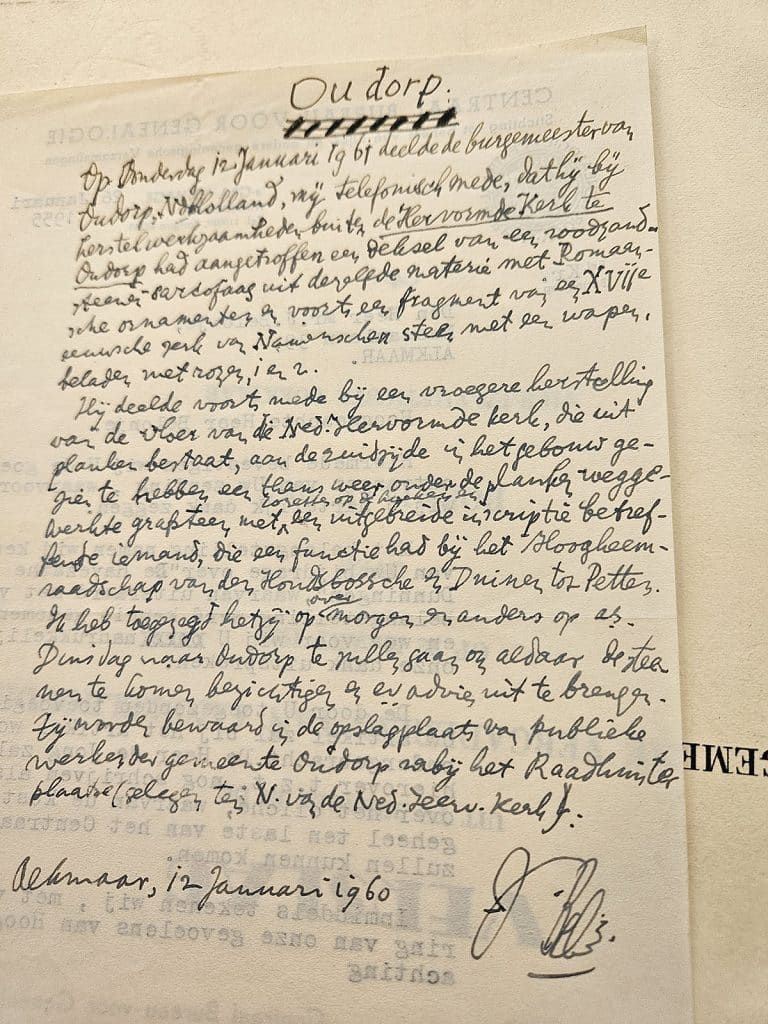 Oudorp.
Op Donderdag 12 Januari 1961 deelde de burgemeester van
Oudorp, N.Holland, mij telefonisch mede, dat hij bij
herstelwerkzaamheden buiten de Hervormde Kerk te
Oudorp had aangetroffen een deksel van een roodzand-
steenen sarcofaag uit dezelfde materie met Romaan-
sche ornamenten en voorts een fragment van een XVIIe
eeuwsche zerk van Namenschen steen met een wapen,
beladen met rozen, 1 en 2.
Hij deelde voorts mede bij een vroegere herstelling
van de vloer van de Ned. Hervormde kerk, die uit
planken bestaat, aan de zuidzijde in het gebouw ge-
zien te hebben een thans weer onder de planken wegge-
rozetten op de hoeken en
werkte grafsteen met een uitgebreide inscriptie betref-
fende iemand, die een functie had bij het Hoogheem-
raadschap van den Hondsbossche en Duinen tot Petten.
Ik heb toegezegd hetzij op over morgen en anders op as.
Dinsdag naar Oudorp te zullen gaan om aldaar de stee-
nen te komen bezichtigen en ev advies uit te brengen.
Zij worden bewaard in de opslagplaats van publieke
werken der gemeente Oudorp nabij het Raadhuis ter
plaatse (gelegen ten N. van de Ned. Herv. Kerk).
Alkmaar, 12 Januari 1960
CENTRAAL BUREAU VOOR GENEALOGIE
ALKMAAR.
geheel ten laste van het Centraal
zullen kunnen komen.
Inmiddels tekenen wij, met
ring van onze gevoelens van Hoog
achting
Centraal Bureau voor
GEME